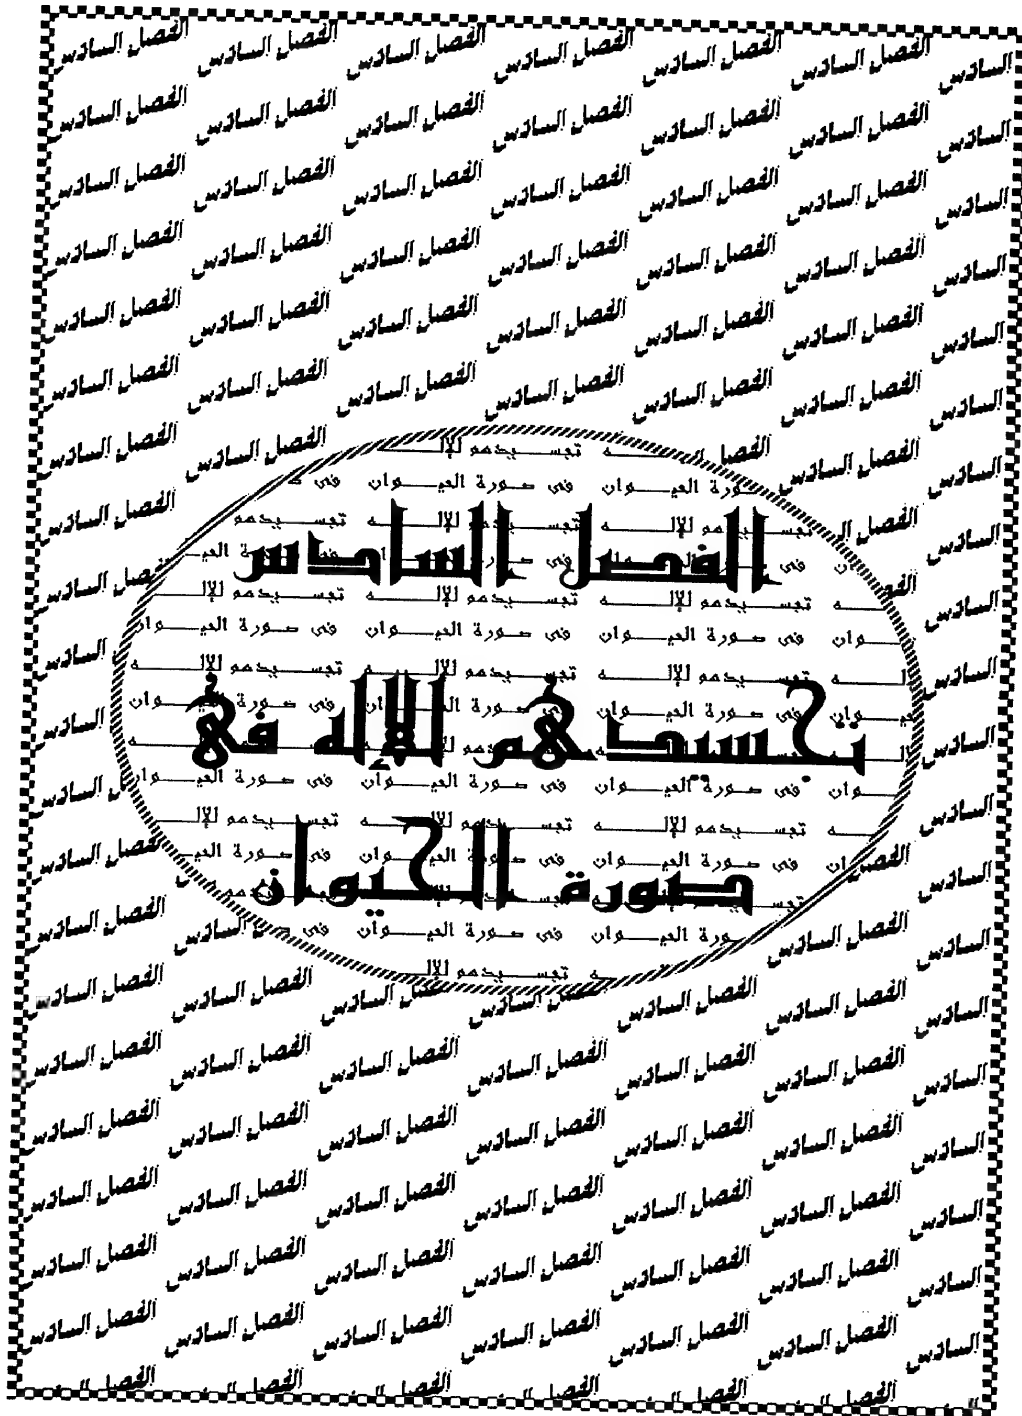 الفصل السادس
تجسيدهم للإله في
صورة الحيوان